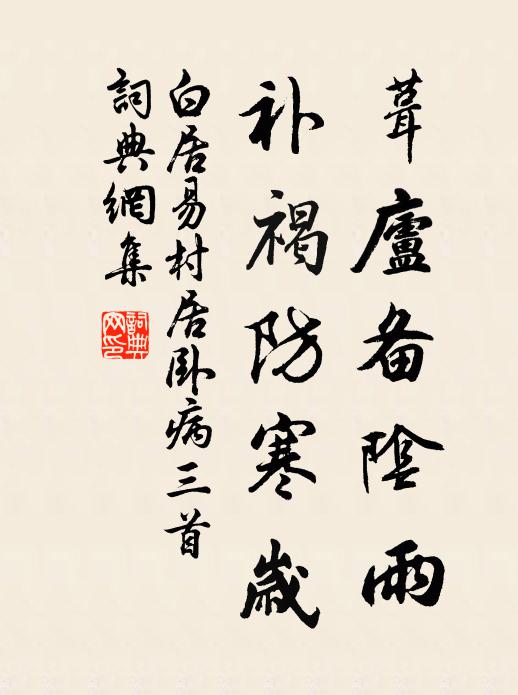 葺廬备陰雨
补褐防寒歲
白居易村居臥病三首
詞典網集
詞典網印